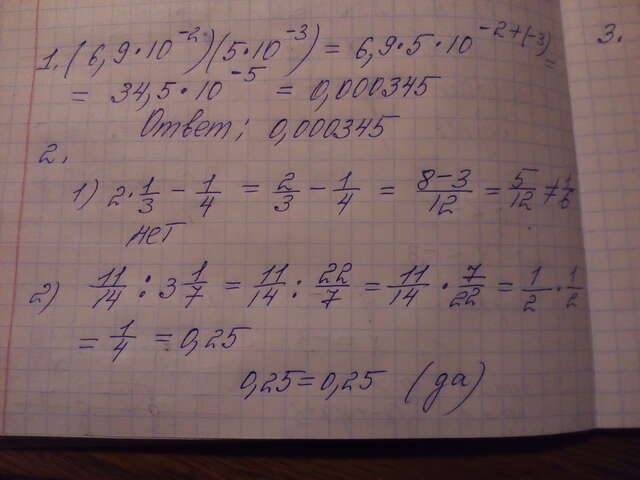 1. (6,9·10⁻²)(5·10⁻³) = 6,9·5·10⁻²⁺⁽⁻³⁾ =
= 34,5·10⁻⁵ = 0,000345
Ответ: 0,000345
2.
1) 2·1/3 − 1/4 = 2/3 − 1/4 = 8−3/12 = 5/12 ≠ 1/6
нет
2) 11/14 : 3 1/7 = 11/14 : 22/7 = 11/14 · 7/22 = 1/2 · 1/2
= 1/4 = 0,25
0,25 = 0,25 (да)
3.